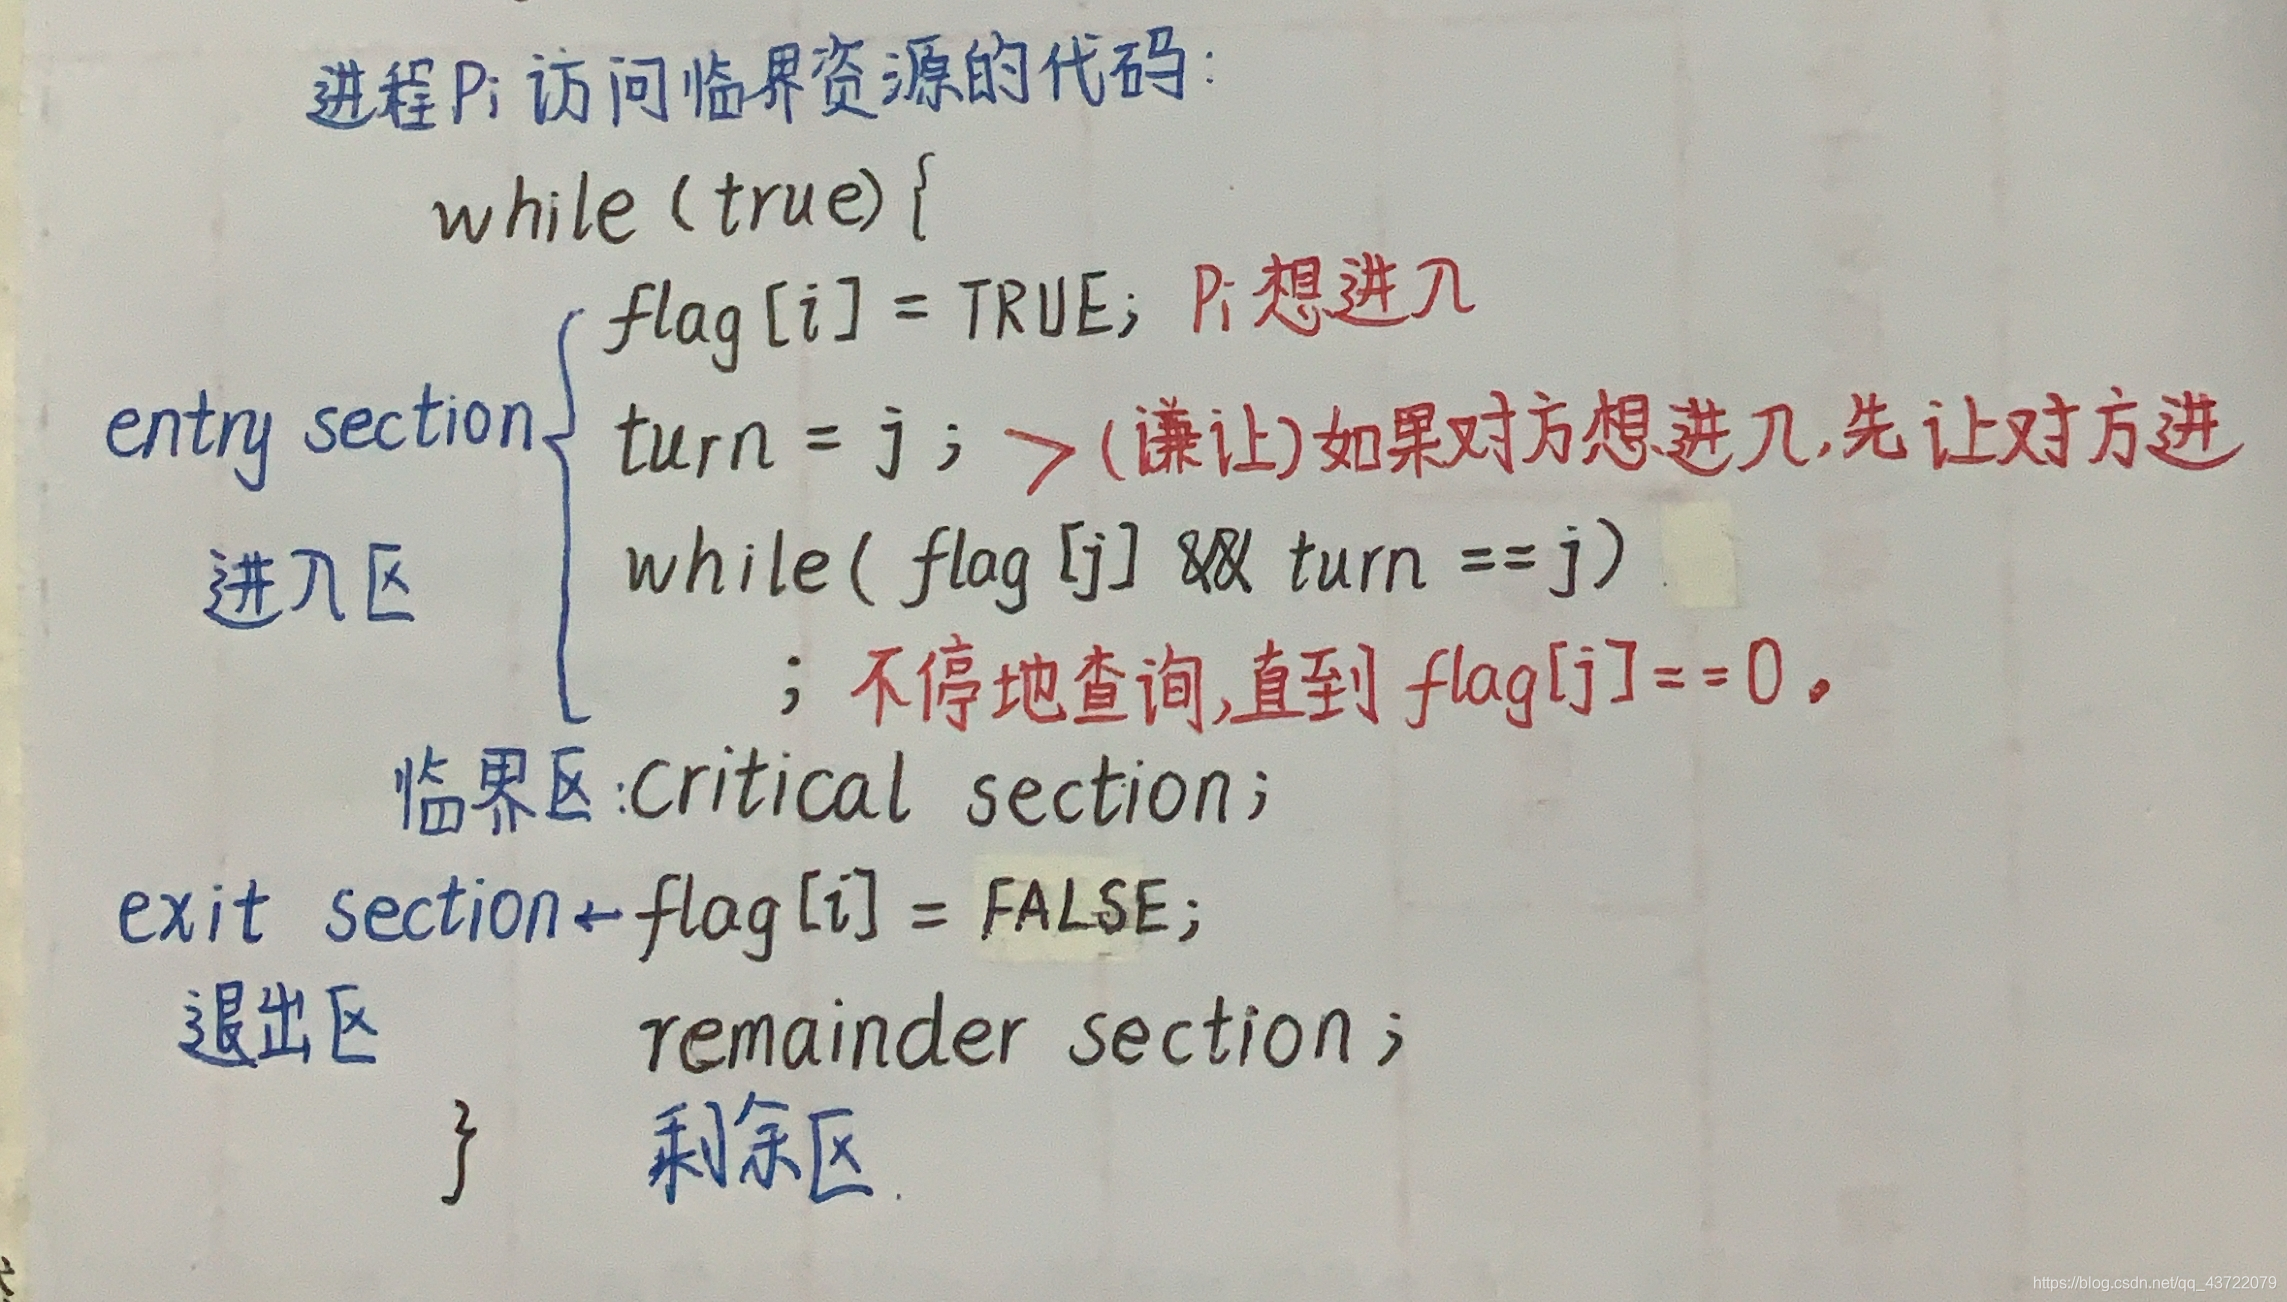 进程Pi访问临界资源的代码:
while (true) {
flag[i] = TRUE; Pi想进入
entry section turn = j; > (谦让)如果对方想进入,先让对方进
进入区 while( flag[j] && turn ==j)
; 不停地查询,直到flag[j]==0.
临界区:critical section;
exit section←flag[i] = FALSE;
退出区 remainder section;
} 剩余区.
https://blog.csdn.net/qq_43722079